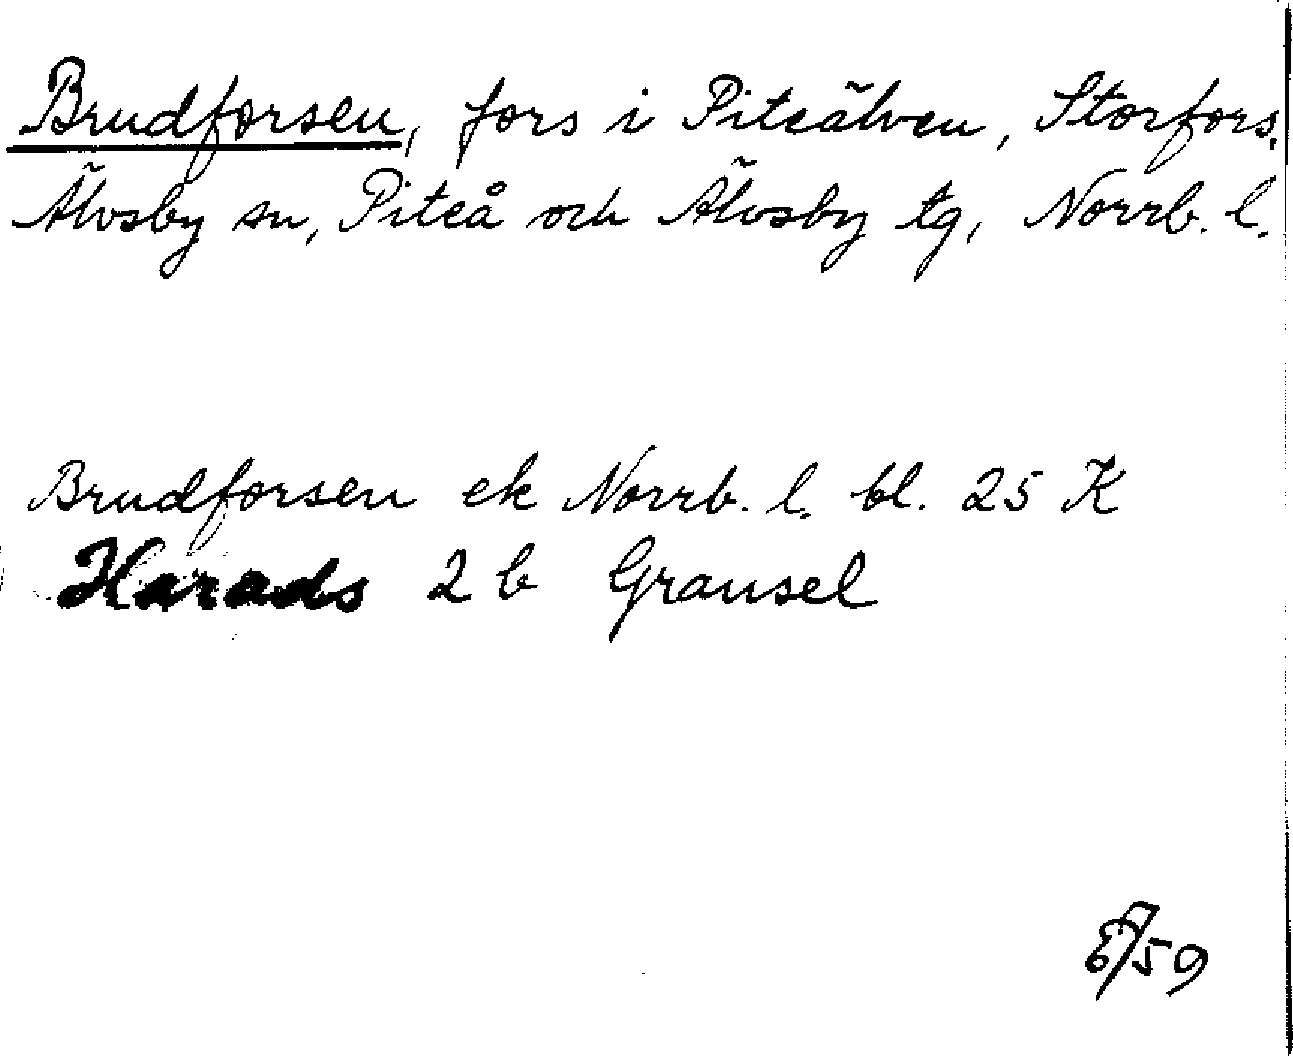 Brudforsen, fors i Piteälven, Storfors,
Älvsby sn, Piteå och Älvsby tg, Norrb. l.
Brudforsen ek Norrb. l. bl. 25 K
Harads 2 b Gransel
59